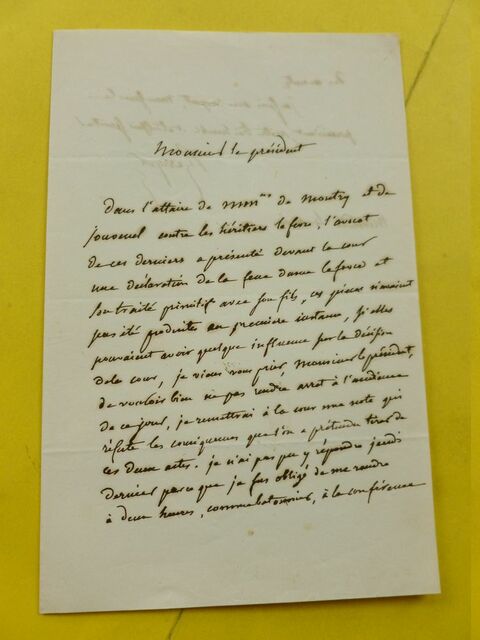 Monsieur le président
Dans l'affaire de MMmes de Montry et de
jouvenel contre les héritiers lefevre, l'avocat
de ces derniers a présenté devant la cour
une déclaration de la feue Dame lefevre et
son traité primitif avec son fils, ces pièces n'avaient
pas été produites en première instance, si elles
pouvaient avoir quelque influence sur la décision
de la cour, je viens vous prier, Monsieur le président,
de vouloir bien ne pas rendre arrêt à l'audience
de ce jour, je remettrai à la cour une note qui
réfute les conséquences que l'on a prétendu tirer de
ces deux actes. je n'ai pas pu y répondre jeudi
dernier parce que je fus obligé de me rendre
à deux heures, comme batonnier, à la conférence